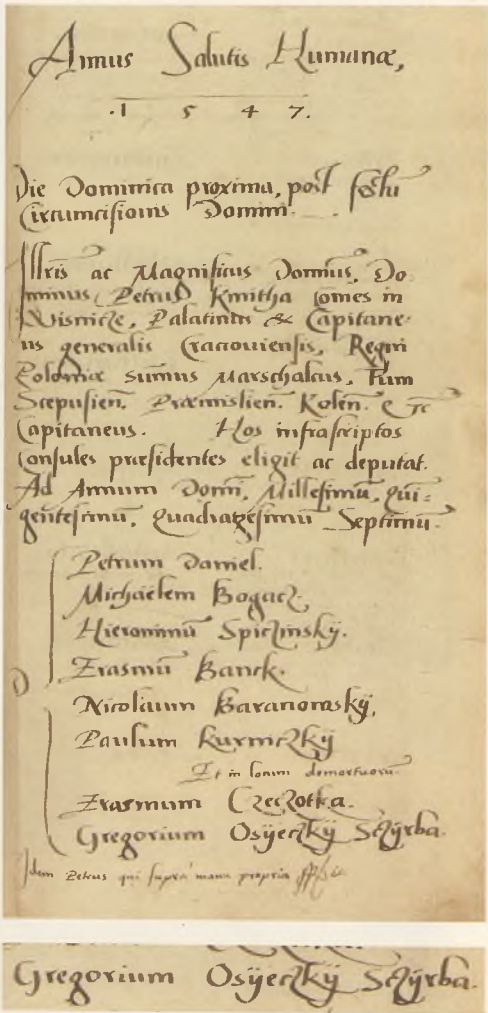 Annus Salutis Humanæ,
.1 5 4 7.
Die Dominica proxima, post festū
Circumcisionis Domini.
Illris ac Magnificus Dominus, Do
minus, Petrus Kmitha Comes in
Wisnicze, Palatinus & Capitane-
us generalis Cracoviensis, Regni
Poloniæ sum̄us Marschalcus, Tum
Scepusien̄. Præmislien̄. Kolen̄. &
Capitaneus. Hos infrascriptos
Consules præsidentes eligit ac deputat.
Ad Annum Domi, Millesimū, Qui-
gētesimū, Quadragesimū Septimū.
Petrum Daniel.
Michaëlem Bogacz.
Hieronimū Spiczinskÿ.
Erasmū Banck.
Nicolaum Baranowskÿ,
Paulum Kurniczkÿ
Et in locum demortuorū
Erasmum Czeczotka.
Gregorium Osÿeczkÿ Sczÿrba.
Idem Petrus qui supra manu propria
Gregorium Osÿeczkÿ Sczÿrba.